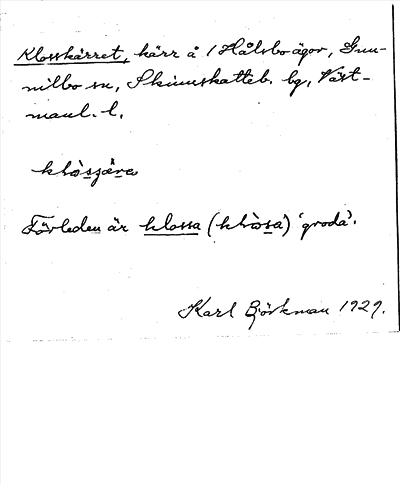 Klosskärret, kärr å Hålsboägor, Gun-
nilbo sn, Skinnskatteb. bg, Väst-
manl. l.
Förleden är klossa (            ) 'groda'.
Karl Björkman 1929.